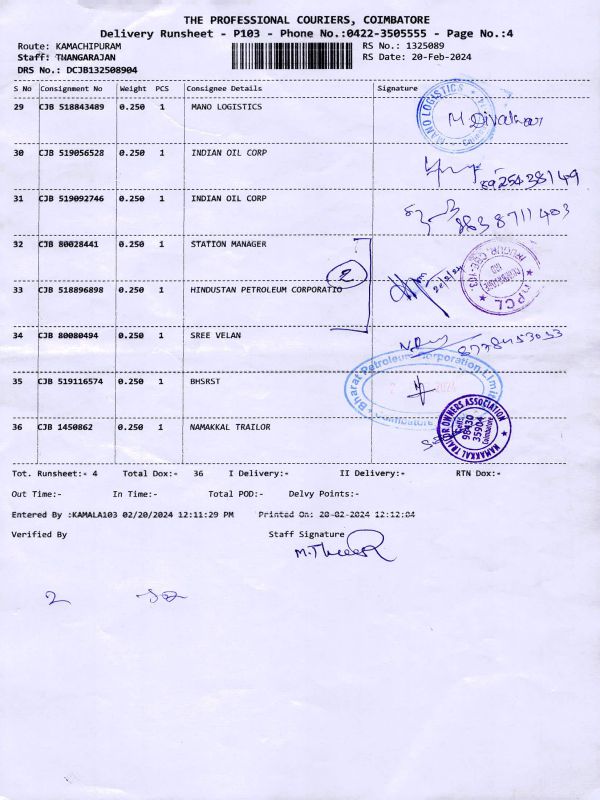 THE PROFESSIONAL COURIERS, COIMBATORE
Delivery Runsheet - P103 - Phone No.:0422-3505555 - Page No.:4
Route: KAMACHIPURAM RS No.: 1325089
Staff: THANGARAJAN RS Date: 20-Feb-2024
DRS No.: DCJB132508904
S No Consignment No Weight PCS Consignee Details Signature
29 CJB 518843489 0.250 1 MANO LOGISTICS
MANO LOGISTICS
M. Divakar
30 CJB 519056528 0.250 1 INDIAN OIL CORP
31 CJB 519092746 0.250 1 INDIAN OIL CORP
863 8711403
32 CJB 80028441 0.250 1 STATION MANAGER
2
HPCL
33 CJB 518896898 0.250 1 HINDUSTAN PETROLEUM CORPORATIO
34 CJB 80080494 0.250 1 SREE VELAN
8778453053
Bharat Petroleum Corporation Limited
Coimbatore
35 CJB 519116574 0.250 1 BHSRST
36 CJB 1450862 0.250 1 NAMAKKAL TRAILOR
NAMAKKAL TRAILOR OWNERS ASSOCIATION
Cell:
98430
35904
Coimbatore
Tot. Runsheet:- 4 Total Dox:- 36 I Delivery:- II Delivery:- RTN Dox:-
Out Time:- In Time:- Total POD:- Delvy Points:-
Entered By :KAMALA103 02/20/2024 12:11:29 PM Printed On: 20-02-2024 12:12:04
Verified By Staff Signature
2